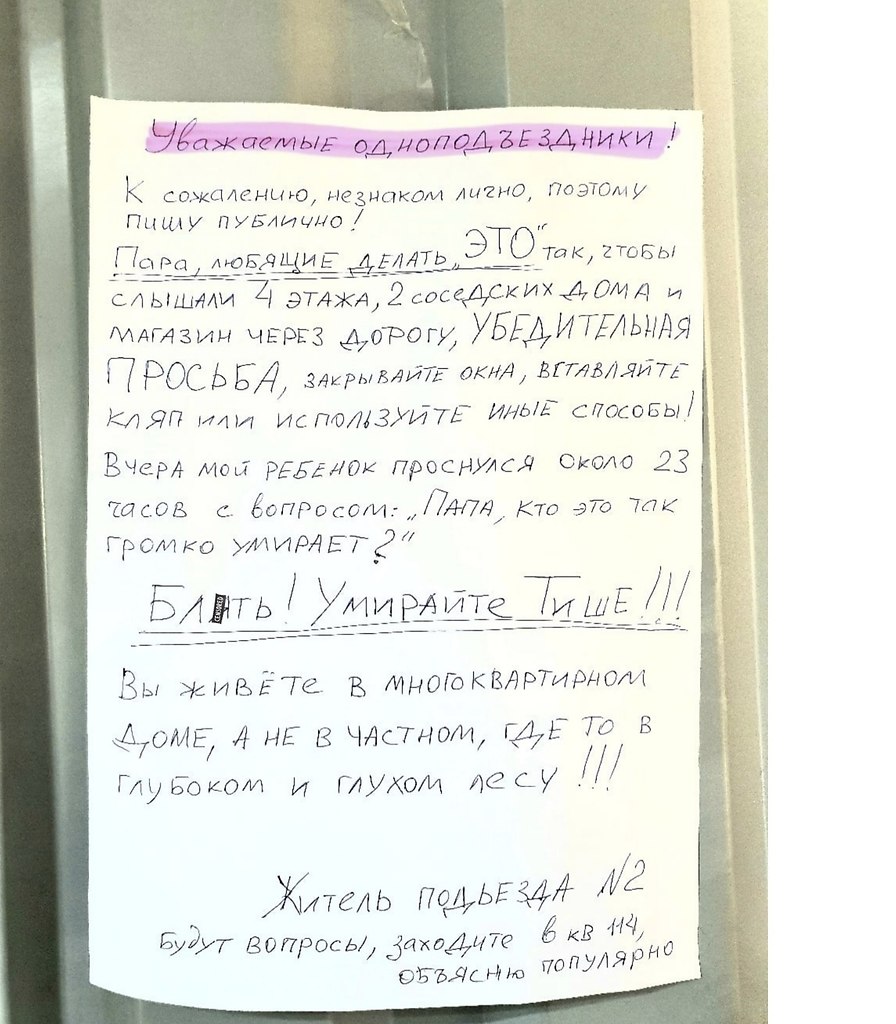 Уважаемые одноподъездники!
К сожалению, незнаком лично, поэтому
пишу публично!
Пара, любящие делать „ЭТО" так, чтобы
слышали 4 этажа, 2 соседских дома и
магазин через дорогу, УБЕДИТЕЛЬНАЯ
ПРОСЬБА, закрывайте окна, вставляйте
кляп или используйте иные способы!
Вчера мой ребенок проснулся около 23
часов с вопросом: „Папа, кто это так
громко умирает?"
Бл ть! Умирайте Тише!!!
CENSORED
Вы живёте в многоквартирном
доме, а не в частном, где то в
глубоком и глухом лесу!!!
Житель подьезда N2
Будут вопросы, заходите в кв 114,
объясню популярно